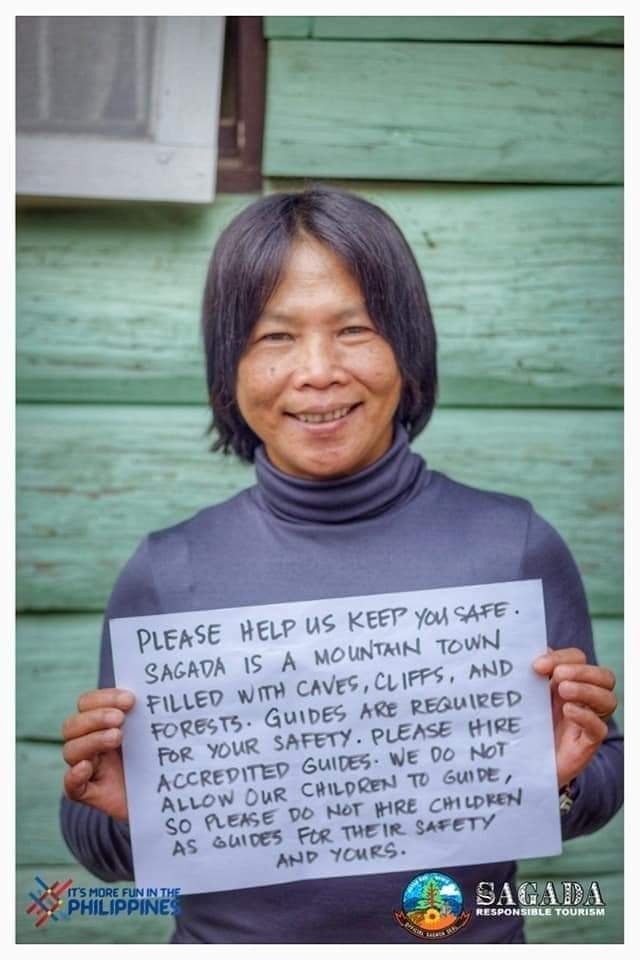 PLEASE HELP US KEEP YOU SAFE.
SAGADA IS A MOUNTAIN TOWN
FILLED WITH CAVES, CLIFFS, AND
FORESTS. GUIDES ARE REQUIRED
FOR YOUR SAFETY. PLEASE HIRE
ACCREDITED GUIDES. WE DO NOT
ALLOW OUR CHILDREN TO GUIDE,
SO PLEASE DO NOT HIRE CHILDREN
AS GUIDES FOR THEIR SAFETY
AND YOURS.
IT'S MORE FUN IN THE
PHILIPPINES
OFFICIAL SAGADA SEAL
SAGADA
RESPONSIBLE TOURISM